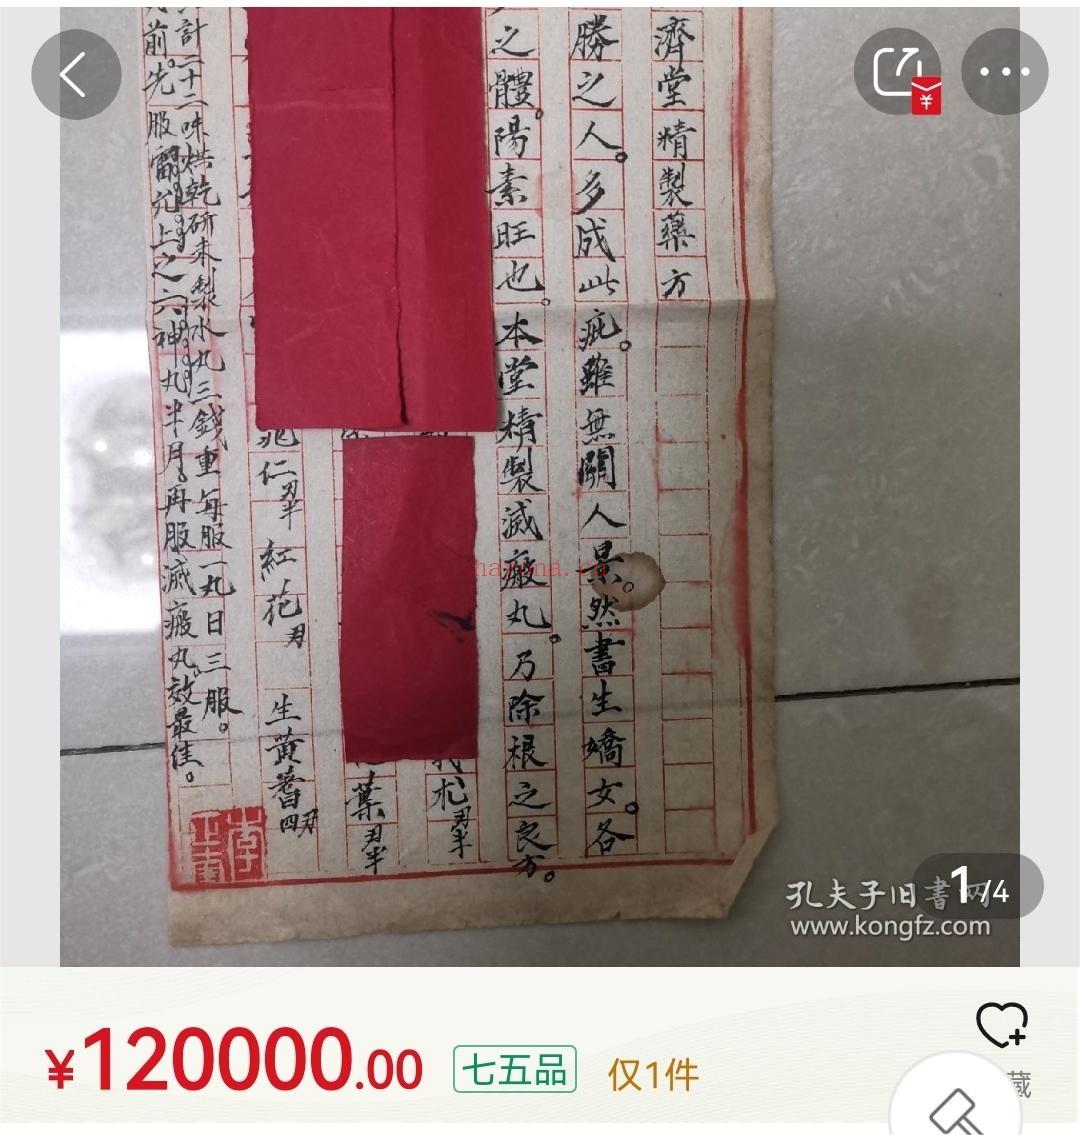 濟堂精製藥方
勝之人。多成此疵。雖無關人景。然書生嬌女。各
之體。陽素旺也。本堂精製滅瘢丸。乃除根之良方。
朮刄半
葉刄半
仁刄半 紅花刄 生黄蓍四刄
計二十二味烘乾研末製水丸三錢重每服一丸日三服。
前先。服上之六神丸半月。再服滅瘢丸。效最佳。
1/4
孔夫子旧書网
www.kongfz.com
¥120000.00 七五品 仅1件
藏